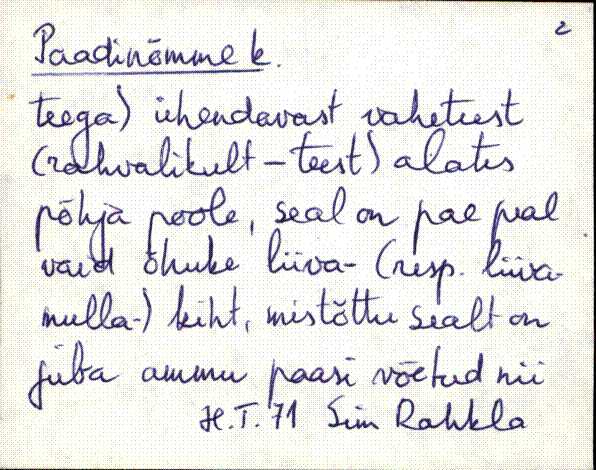 2
Paadinõmme k.
teega) ühendavast vaheteest
(rahvalikult – teest) alates
põhja poole, seal on pae peal
vaid õhuke liiva- (resp. liiva-
mulla-) kiht, mistõttu sealt on
juba ammu paasi võetud nii
H.T. 71 Siin Rahkla